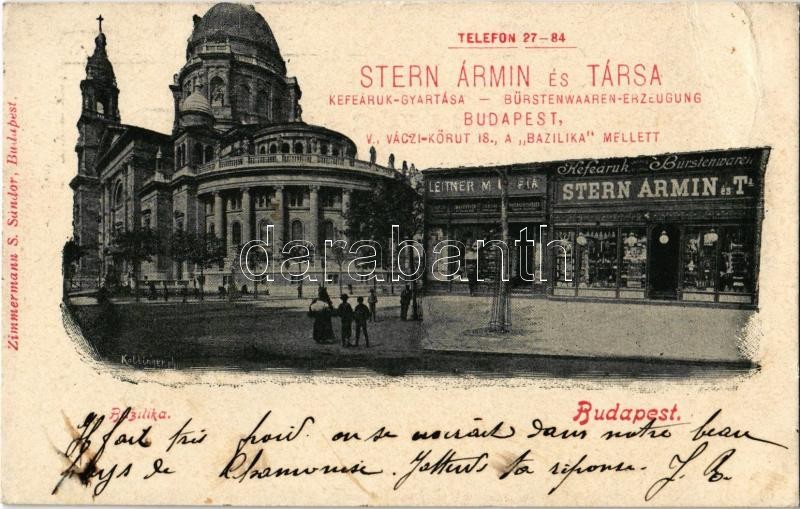 TELEFON 27-84
STERN ÁRMIN ÉS TÁRSA
KEFEÁRUK-GYARTÁSA — BÜRSTENWAAREN-ERZEUGUNG
BUDAPEST,
V., VÁCZI-KÖRUT 18., A „BAZILIKA" MELLETT
Zimmermann S. Sándor, Budapest.
LEITNER M
Kefeáruk Bürstenwaren
STERN ÁRMIN és T.ª
darabanth
Bazilika.
Budapest.
Il fait très froid. on se croirait dans notre beau
pays de Chamonise. J'attends ta réponse. J. R.